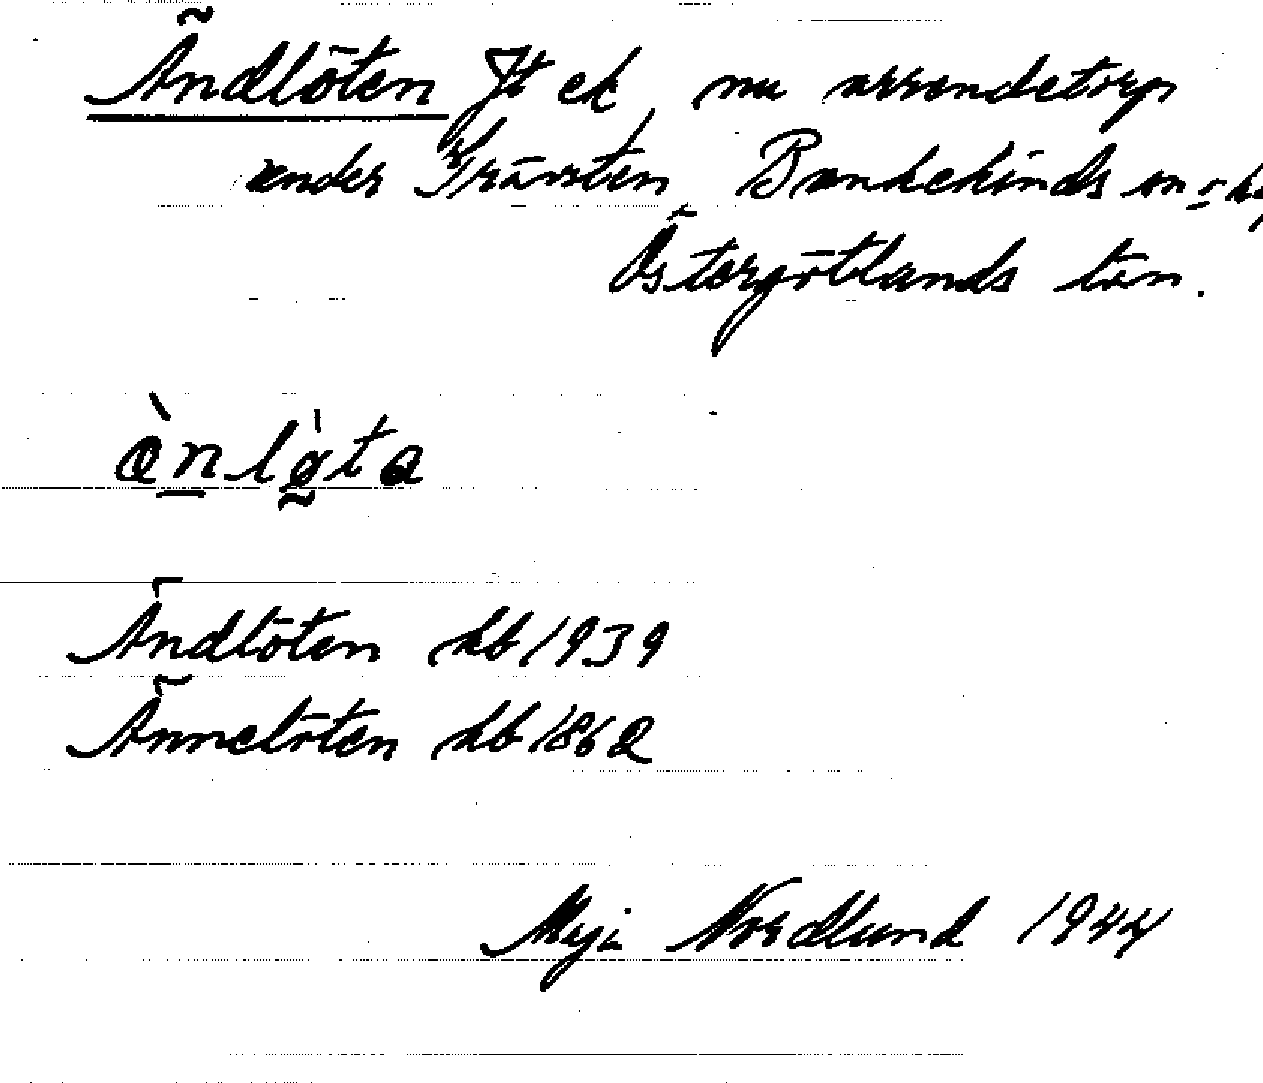 Ändlöten Jt ek, nu arrendetorp
under Grävsten, Bankekinds sn o hd
Östergötlands län.
Ändlöten Jb 1939
Ännelöten Jb 1862
Maja Nordlund 1944